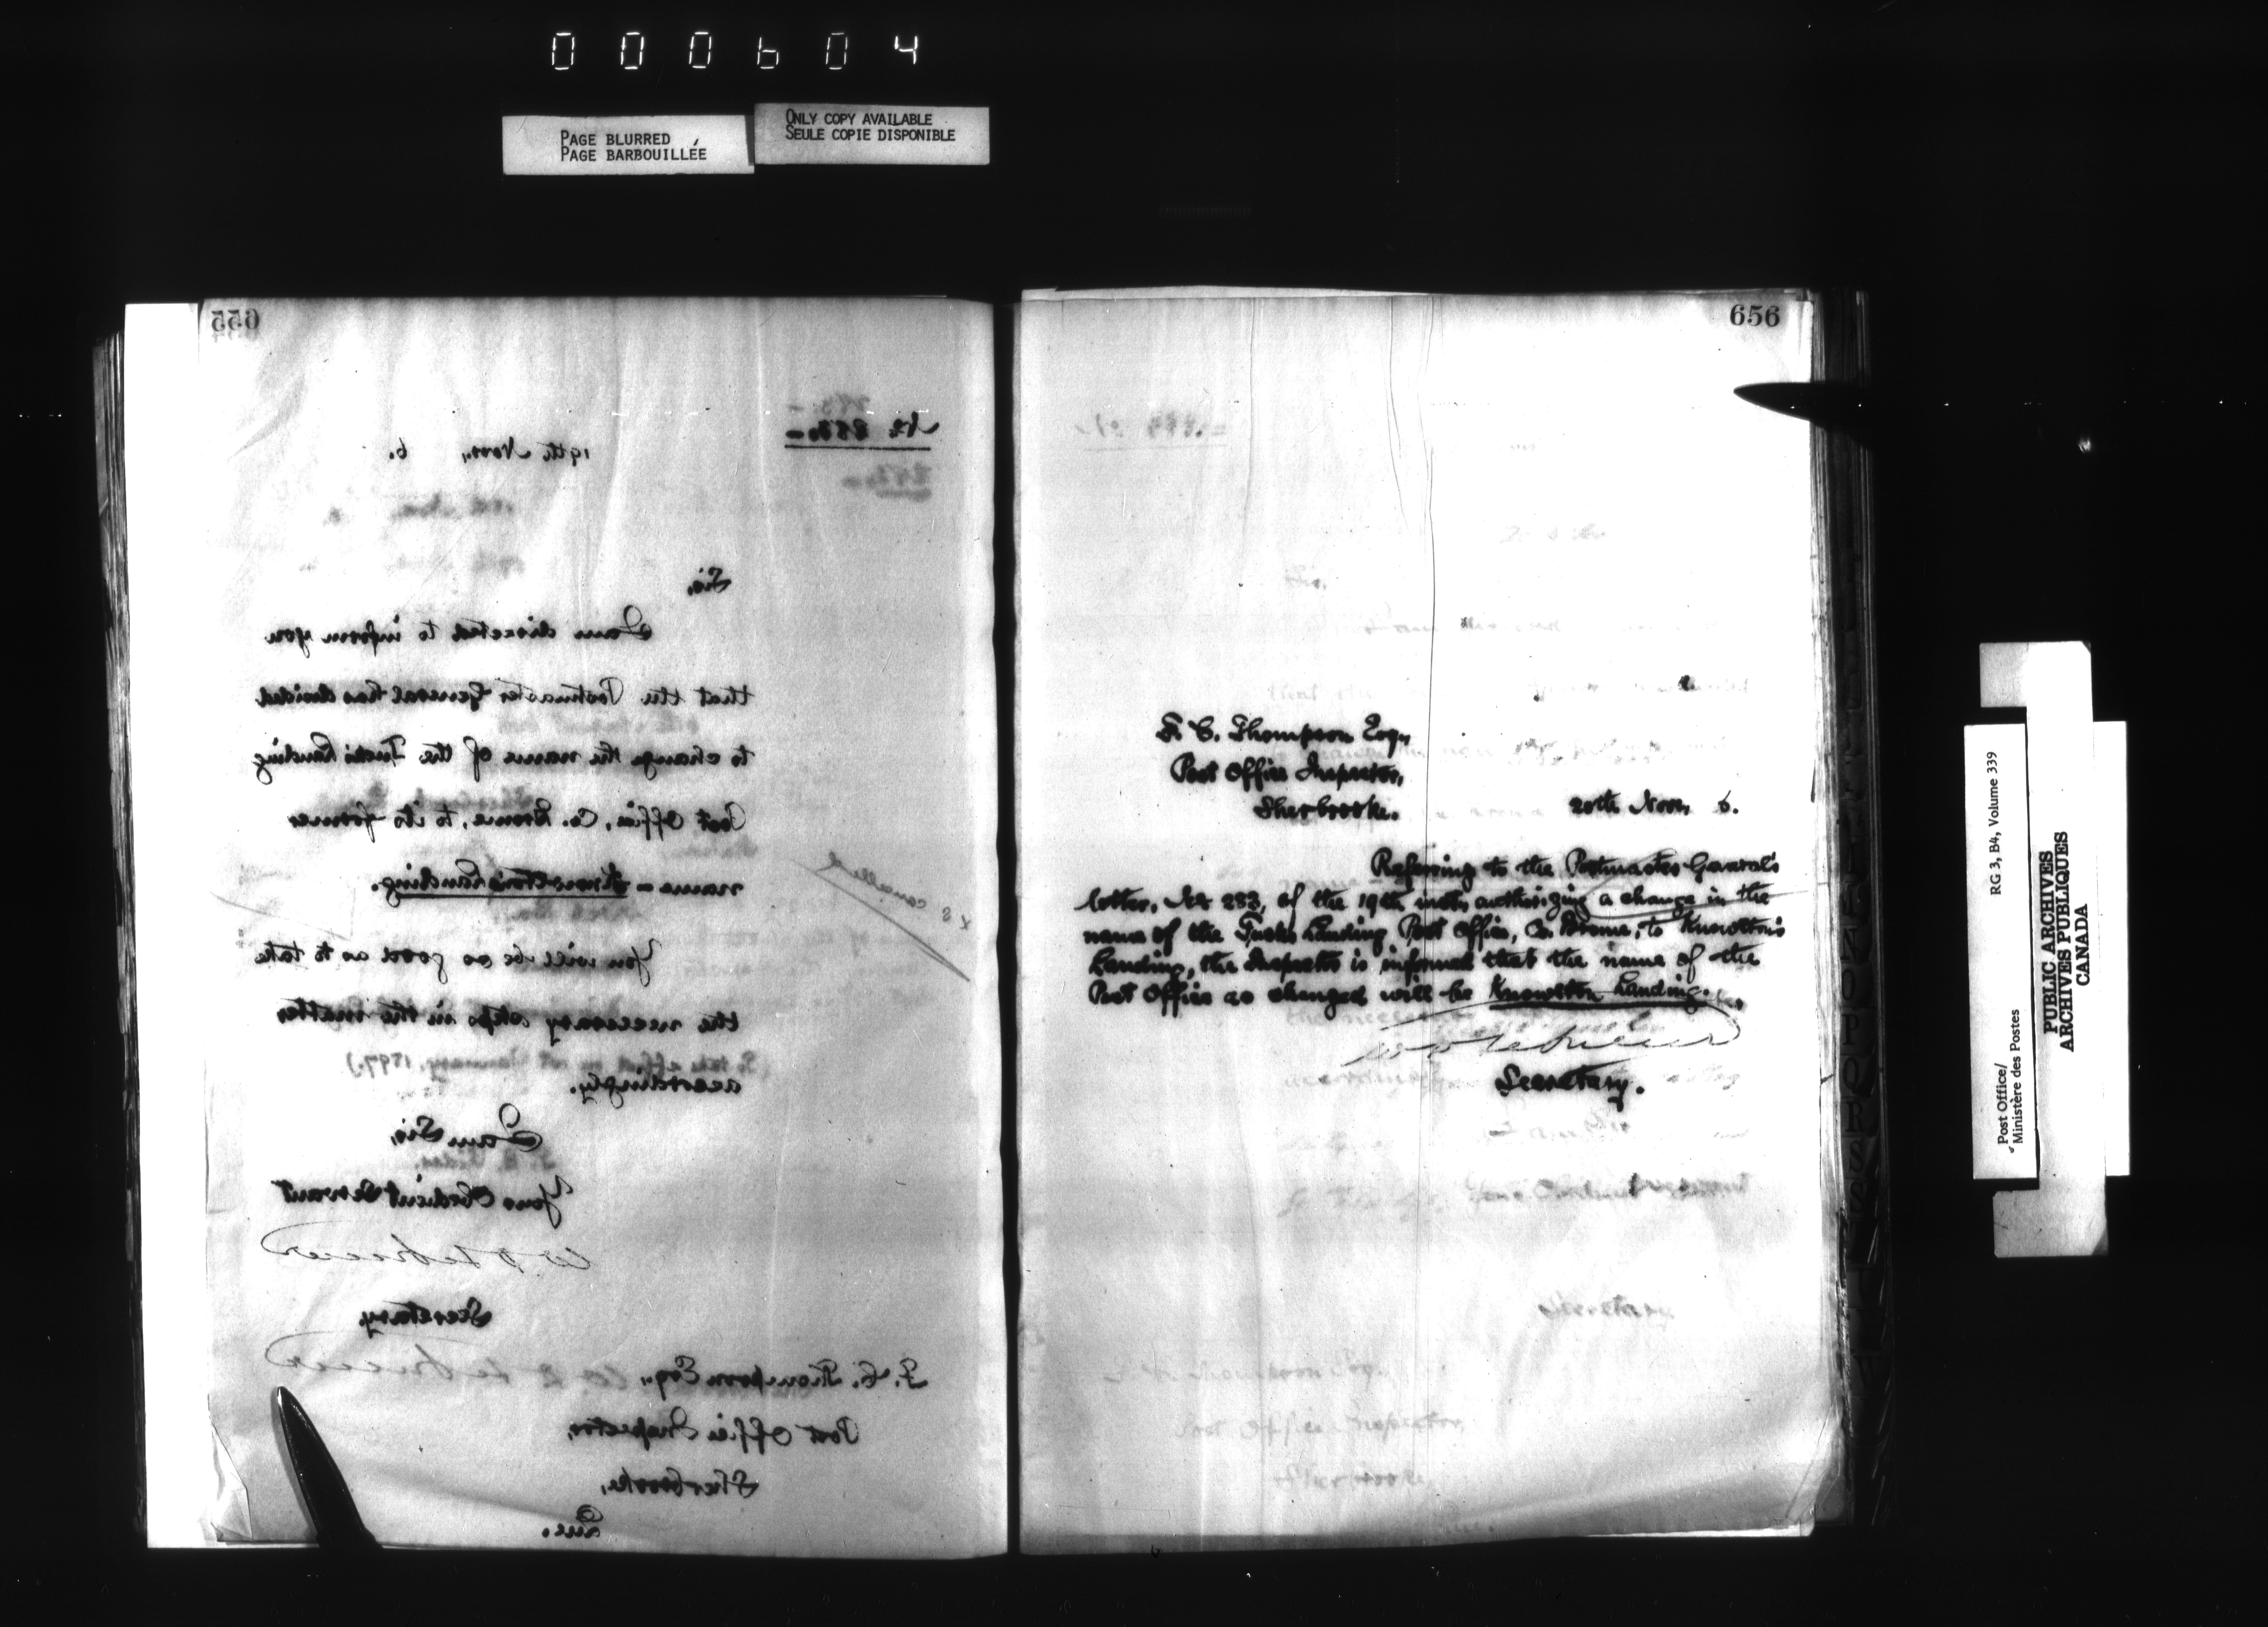 000604
PAGE BLURRED
PAGE BARBOUILLÉE
ONLY COPY AVAILABLE
SEULE COPIE DISPONIBLE
655
No 283.
19th Novr., 6.
Sir,
I am directed to inform you
that the Postmaster General has decided
to change the name of the Tuck's Landing
Post Office, Co. Brome, to its former
name – Knowlton's Landing.
You will be so good as to take
the necessary steps in the matter
accordingly.
(To take effect on 1st January, 1897.)
I am Sir,
Your Obedient Servant
W. D. LeSueur
Secretary
F. C. Thompson Esq.,
Post Office Inspector,
Sherbrooke,
Que.
cancelled
656
F. C. Thompson Esq.,
Post Office Inspector,
Sherbrooke.
20th Novr, 6.
Referring to the Postmaster General's
letter, No 283, of the 19th inst, authorizing a change in the
name of the Tuck's Landing Post Office, Co. Brome, to Knowlton's
Landing, the Inspector is informed that the name of the
Post Office as changed will be Knowlton Landing.
W D LeSueur
Secretary.
Post Office/
Ministère des Postes
RG 3, B4, Volume 339
PUBLIC ARCHIVES
ARCHIVES PUBLIQUES
CANADA